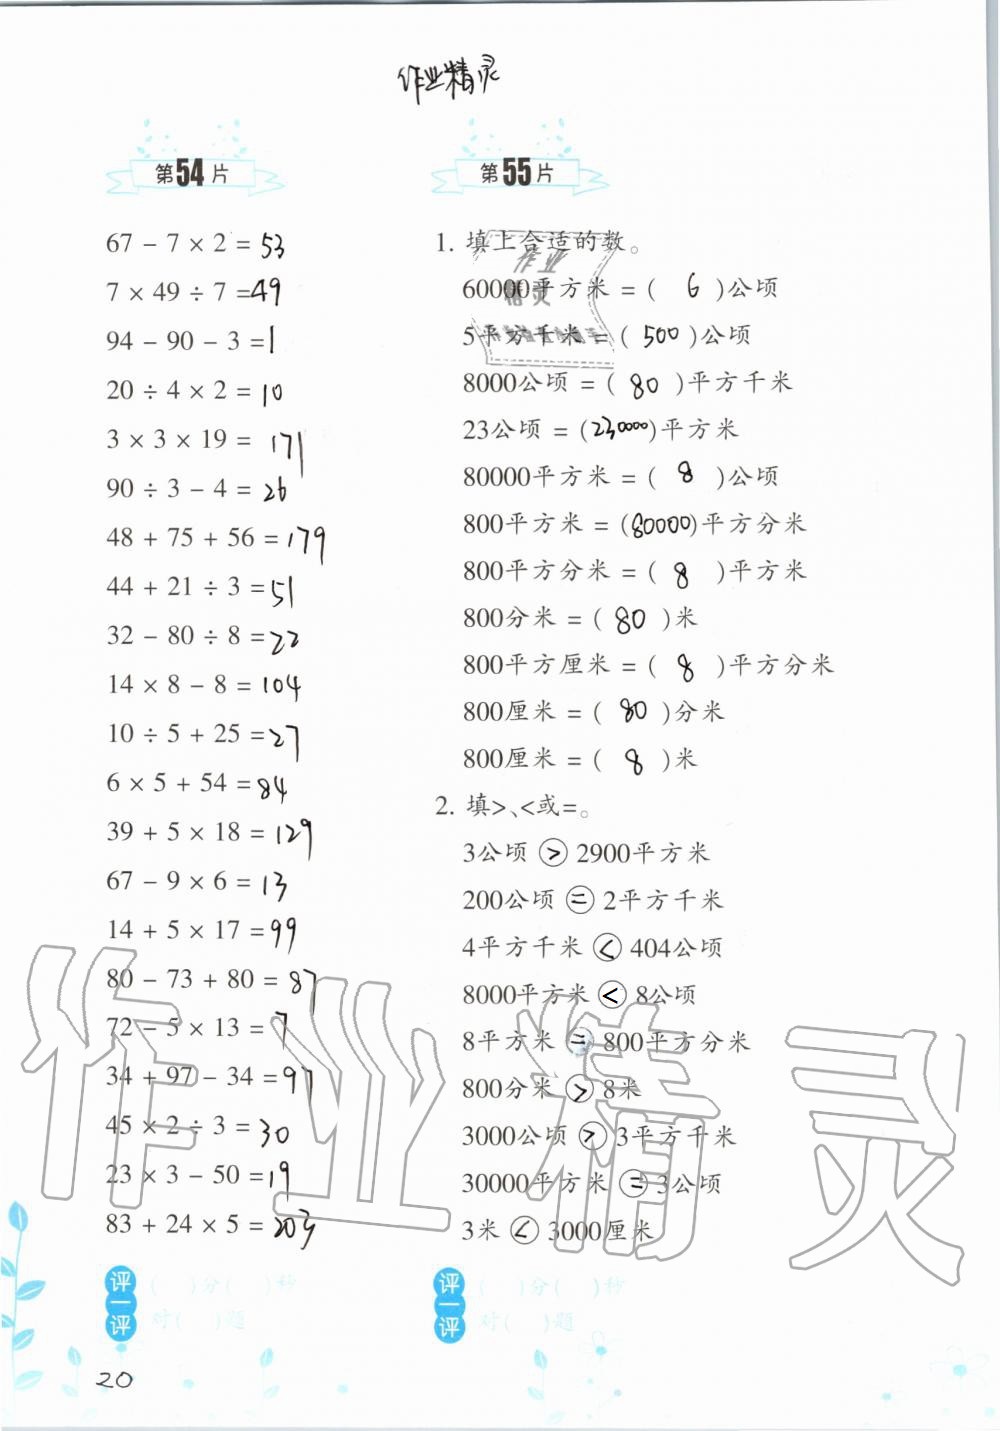 作业精灵
第54片
67 - 7 × 2 = 53
7 × 49 ÷ 7 = 49
94 - 90 - 3 = 1
20 ÷ 4 × 2 = 10
3 × 3 × 19 = 171
90 ÷ 3 - 4 = 26
48 + 75 + 56 = 179
44 + 21 ÷ 3 = 51
32 - 80 ÷ 8 = 22
14 × 8 - 8 = 104
10 ÷ 5 + 25 = 27
6 × 5 + 54 = 84
39 + 5 × 18 = 129
67 - 9 × 6 = 13
14 + 5 × 17 = 99
80 - 73 + 80 = 87
72 - 5 × 13 = 7
34 + 97 - 34 = 97
45 × 2 ÷ 3 = 30
23 × 3 - 50 = 19
83 + 24 × 5 = 203
评一评
( )分( )秒
对( )题
20
第55片
1. 填上合适的数。
60000平方米 = ( 6 )公顷
5平方千米 = ( 500 )公顷
8000公顷 = ( 80 )平方千米
23公顷 = (230000)平方米
80000平方米 = ( 8 )公顷
800平方米 = (80000)平方分米
800平方分米 = ( 8 )平方米
800分米 = ( 80 )米
800平方厘米 = ( 8 )平方分米
800厘米 = ( 80 )分米
800厘米 = ( 8 )米
2. 填>、<或=。
3公顷 > 2900平方米
200公顷 = 2平方千米
4平方千米 < 404公顷
8000平方米 < 8公顷
8平方米 = 800平方分米
800分米 > 8米
3000公顷 > 3平方千米
30000平方米 = 3公顷
3米 < 3000厘米
评一评
( )分( )秒
对( )题
作业精灵
作业
精灵